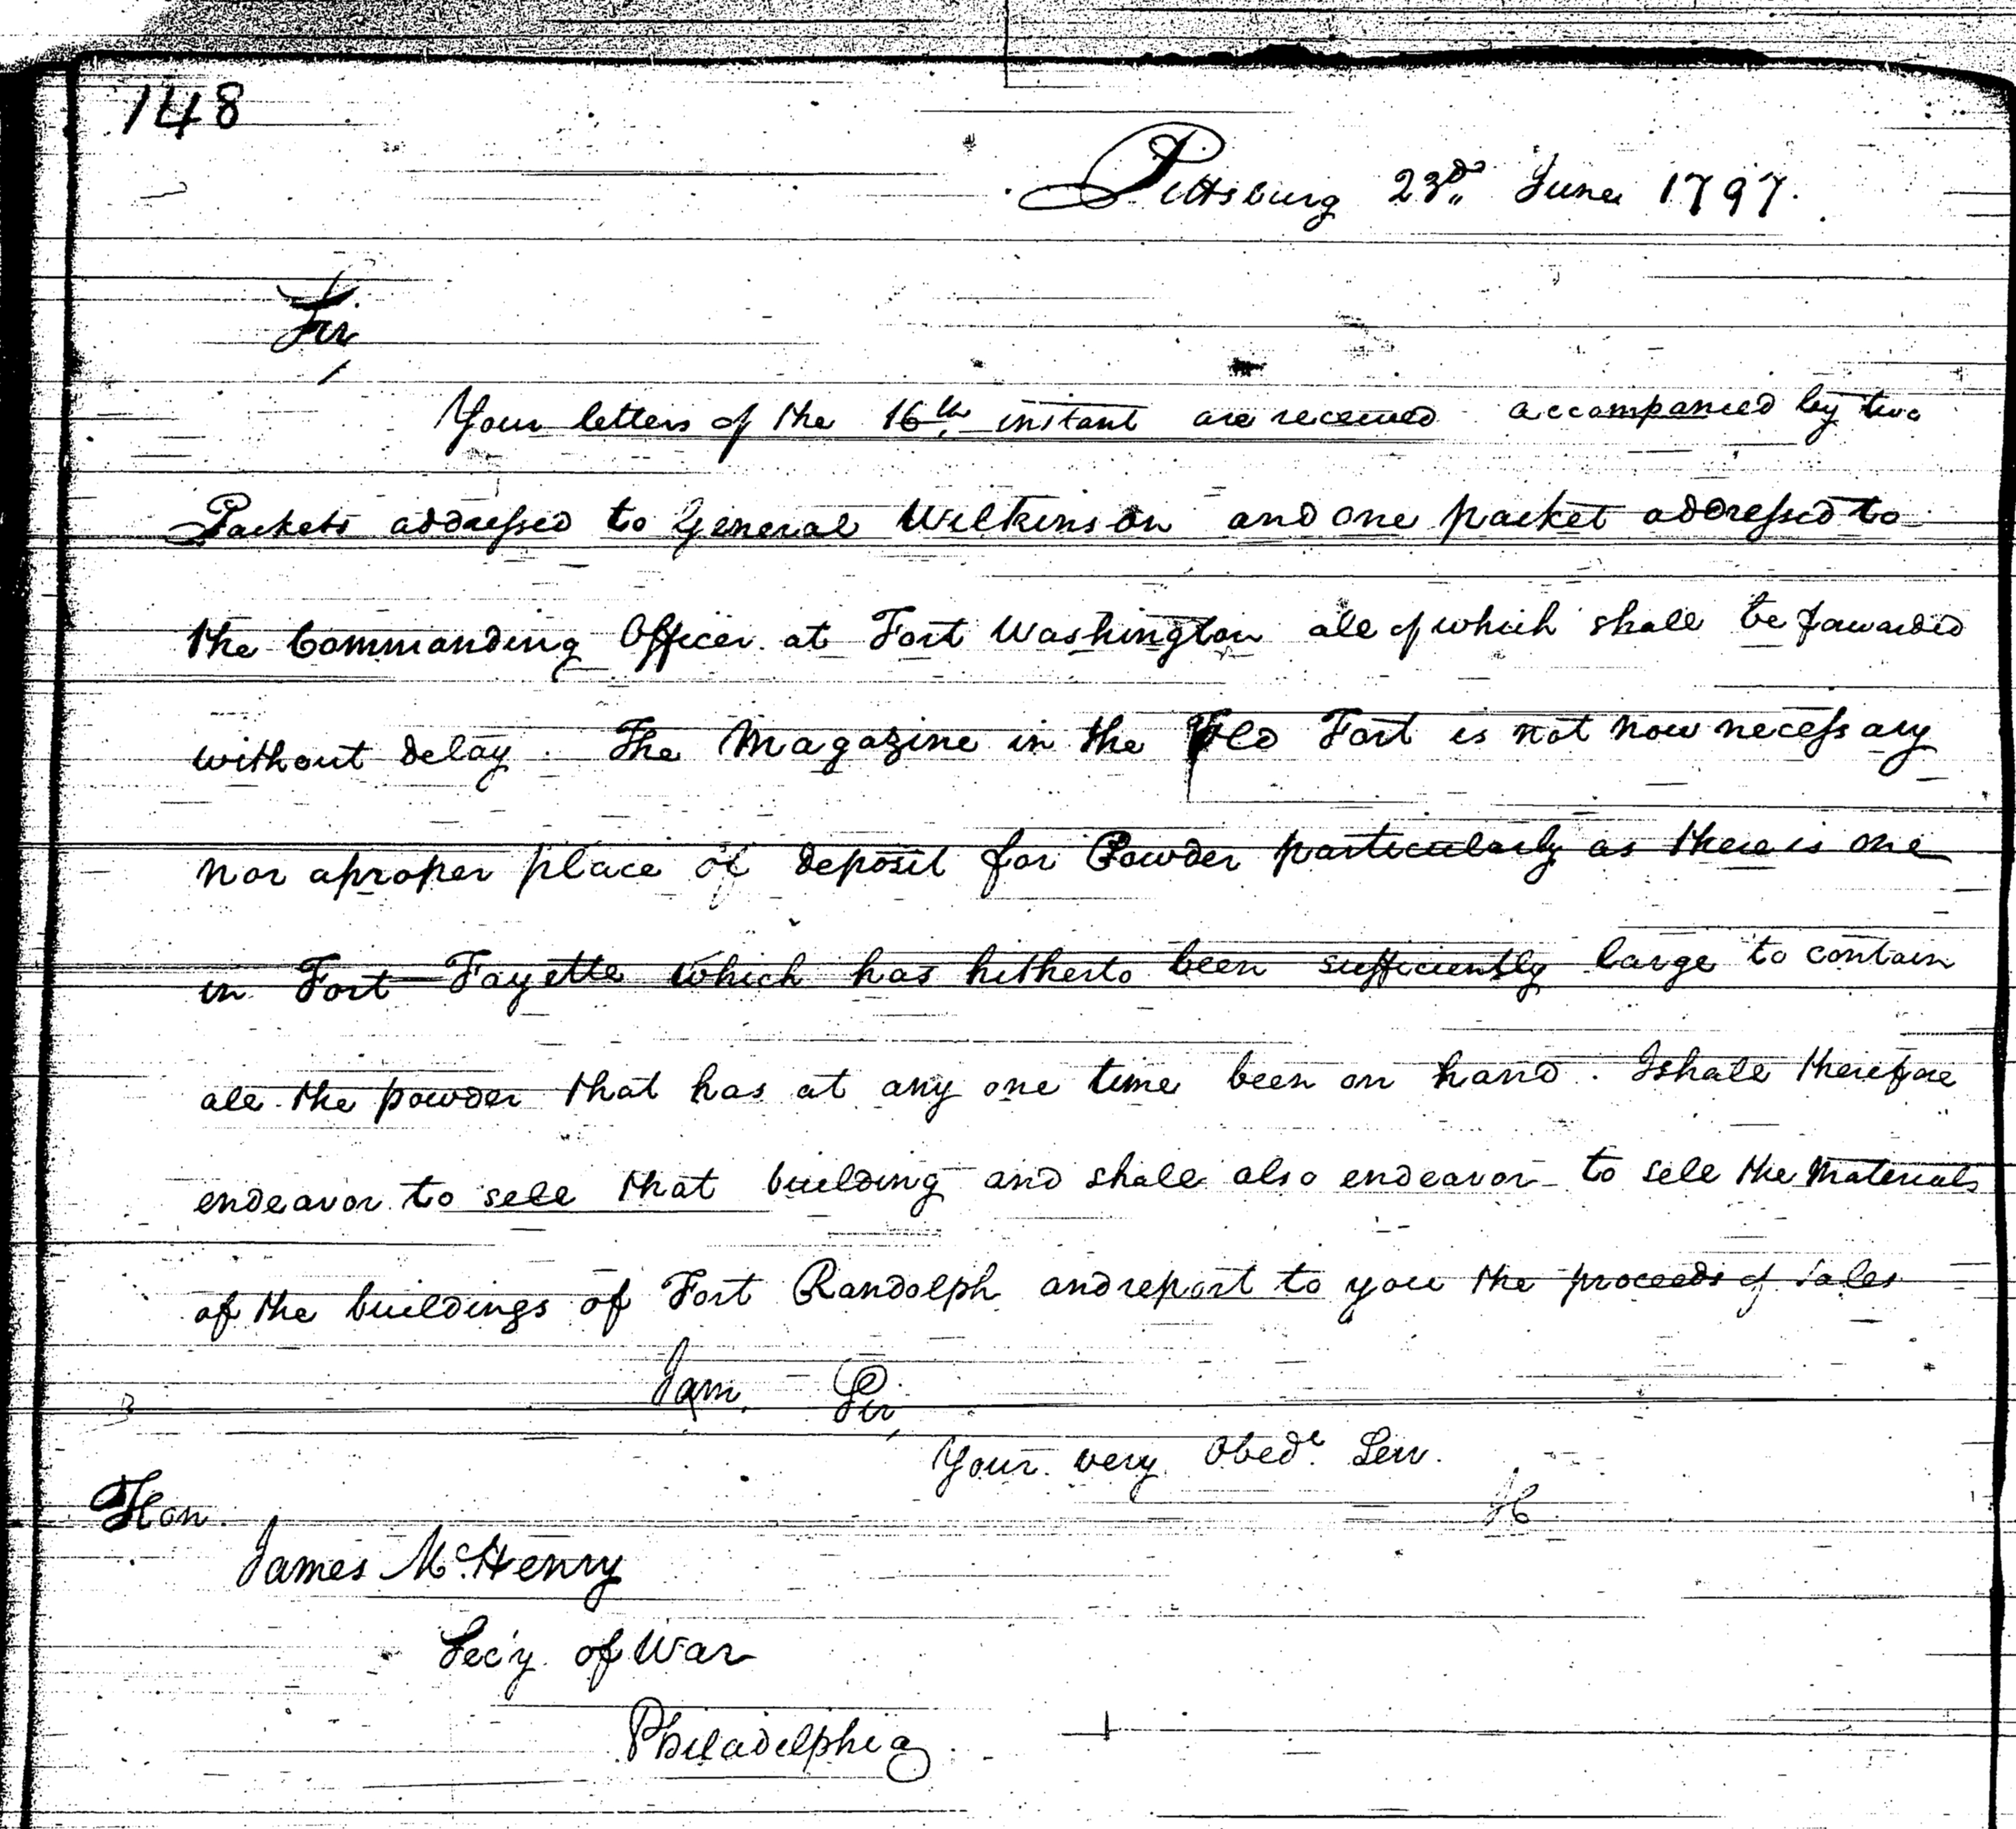 148
Pittsburg 23d. June 1797.
Sir,
Your letters of the 16th. instant are received accompanied by two
Packets addressed to General Wilkinson and one packet addressed to
the Commanding Officer at Fort Washington all of which shall be fawarded
without delay. The Magazine in the Old Fort is not now necessary
nor a proper place of deposit for Powder particularly as there is one
in Fort Fayette which has hitherto been sufficiently large to contain
all the powder that has at any one time been on hand. I shall therefore
endeavor to sell that building and shall also endeavor to sell the Materials
of the buildings of Fort Randolph and report to you the proceeds of sales
I am, Sir,
Your very Obedt. Serv.
Hon.
James McHenry
Sec'y of War
Philadelphia